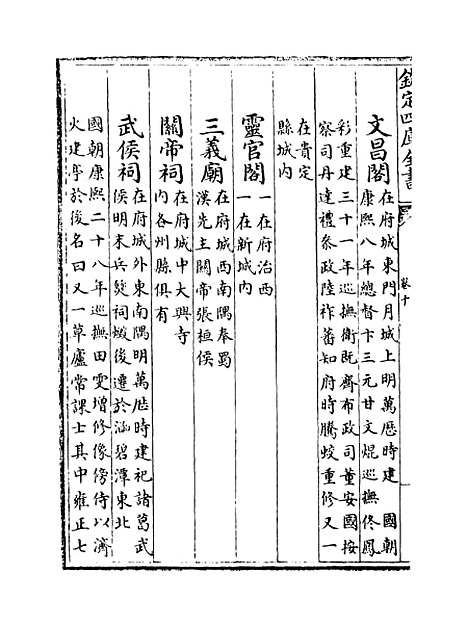 欽定四庫全書
卷十
文昌閣在府城東門月城上明萬厯時建　國朝
康熙八年總督卞三元甘文焜巡撫佟鳳
彩重建三十一年巡撫衛既齊布政司董安國按
察司丹達禮叅政陸祚蕃知府時騰蛟重修又一
在貴定
縣城内
靈官閣一在府治西
一在新城内
三義廟在府城西南隅奉蜀
漢先主關帝張桓侯
關帝祠在府城中大興寺
内各州縣俱有
武侯祠在府城外東南隅明萬厯時建祀諸葛武
侯明末兵燹祠燬後遷於涵碧潭東北
國朝康熙二十八年巡撫田雯增修像傍侍以濟
火建亭於後名曰又一草廬常課士其中雍正七